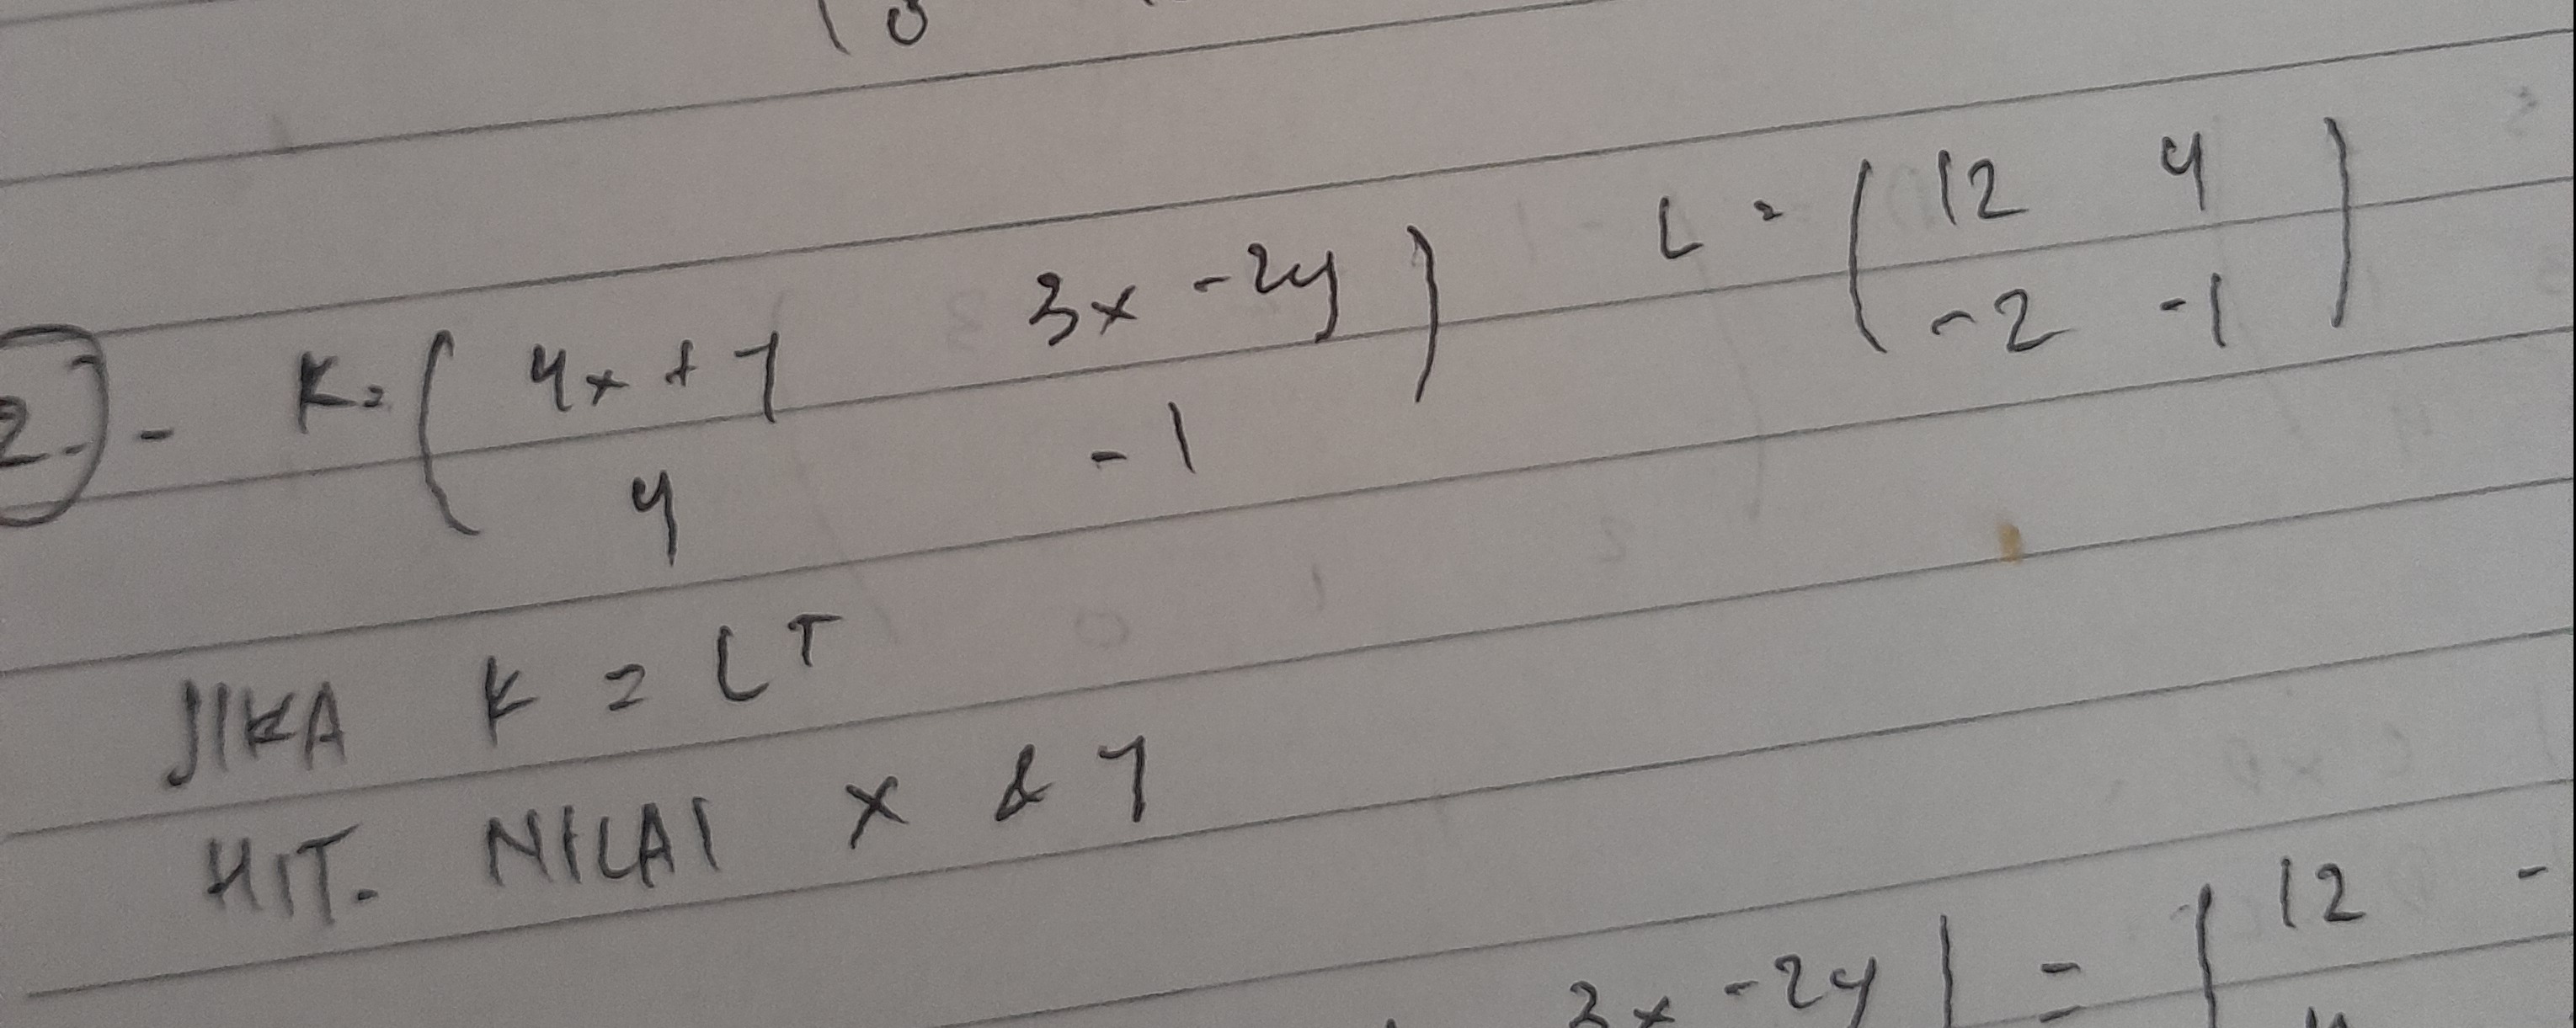 2.) - K = ( 4x + y 3x - 2y ) L = ( 12 4 )
( 4 -1 ) ( -2 -1 )
JIKA K = L^T
HIT. NILAI x & y
3x - 2y | = | 12 -